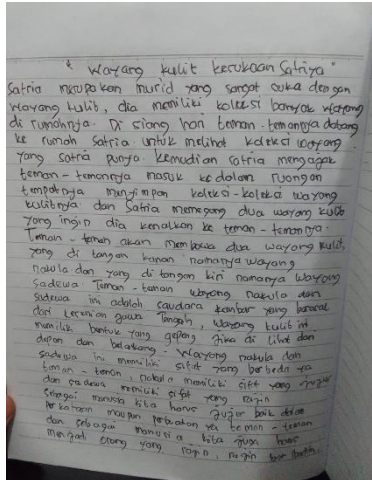 " Wayang kulit kesukaan Satriya "
Satria merupakan murid yang sangat suka dengan
wayang kulit, dia memiliki koleksi banyak wayang
di rumahnya. Di siang hari teman-temannya datang
ke rumah Satria untuk melihat koleksi wayang
yang satria punya. Kemudian satria mengajak
teman-temannya masuk kedalam ruangan
tempatnya menyimpan koleksi-koleksi wayang
kulitnya dan Satria memegang dua wayang kulit
yang ingin dia kenalkan ke teman-temannya.
Teman-teman akan membawa dua wayang kulit,
yang di tangan kanan namanya wayang
nakula dan yang di tangan kiri namanya wayang
sadewa. Teman-teman wayang nakula dan
sadewa ini adalah saudara kembar yang berasal
dari kesenian jawa Tengah, wayang kulit ini
memiliki bentuk yang gepeng jika di lihat dari
depan dan belakang. Wayang nakula dan
sadewa ini memiliki sifat yang berbeda ya
teman-teman, nakula memiliki sifat yang jujur
dan sadewa memiliki sifat yang rajin
sebagai manusia kita harus jujur baik dalam
perkataan maupun perbuatan ya teman-teman
dan sebagai manusia kita juga harus
menjadi orang yang rajin, rajin